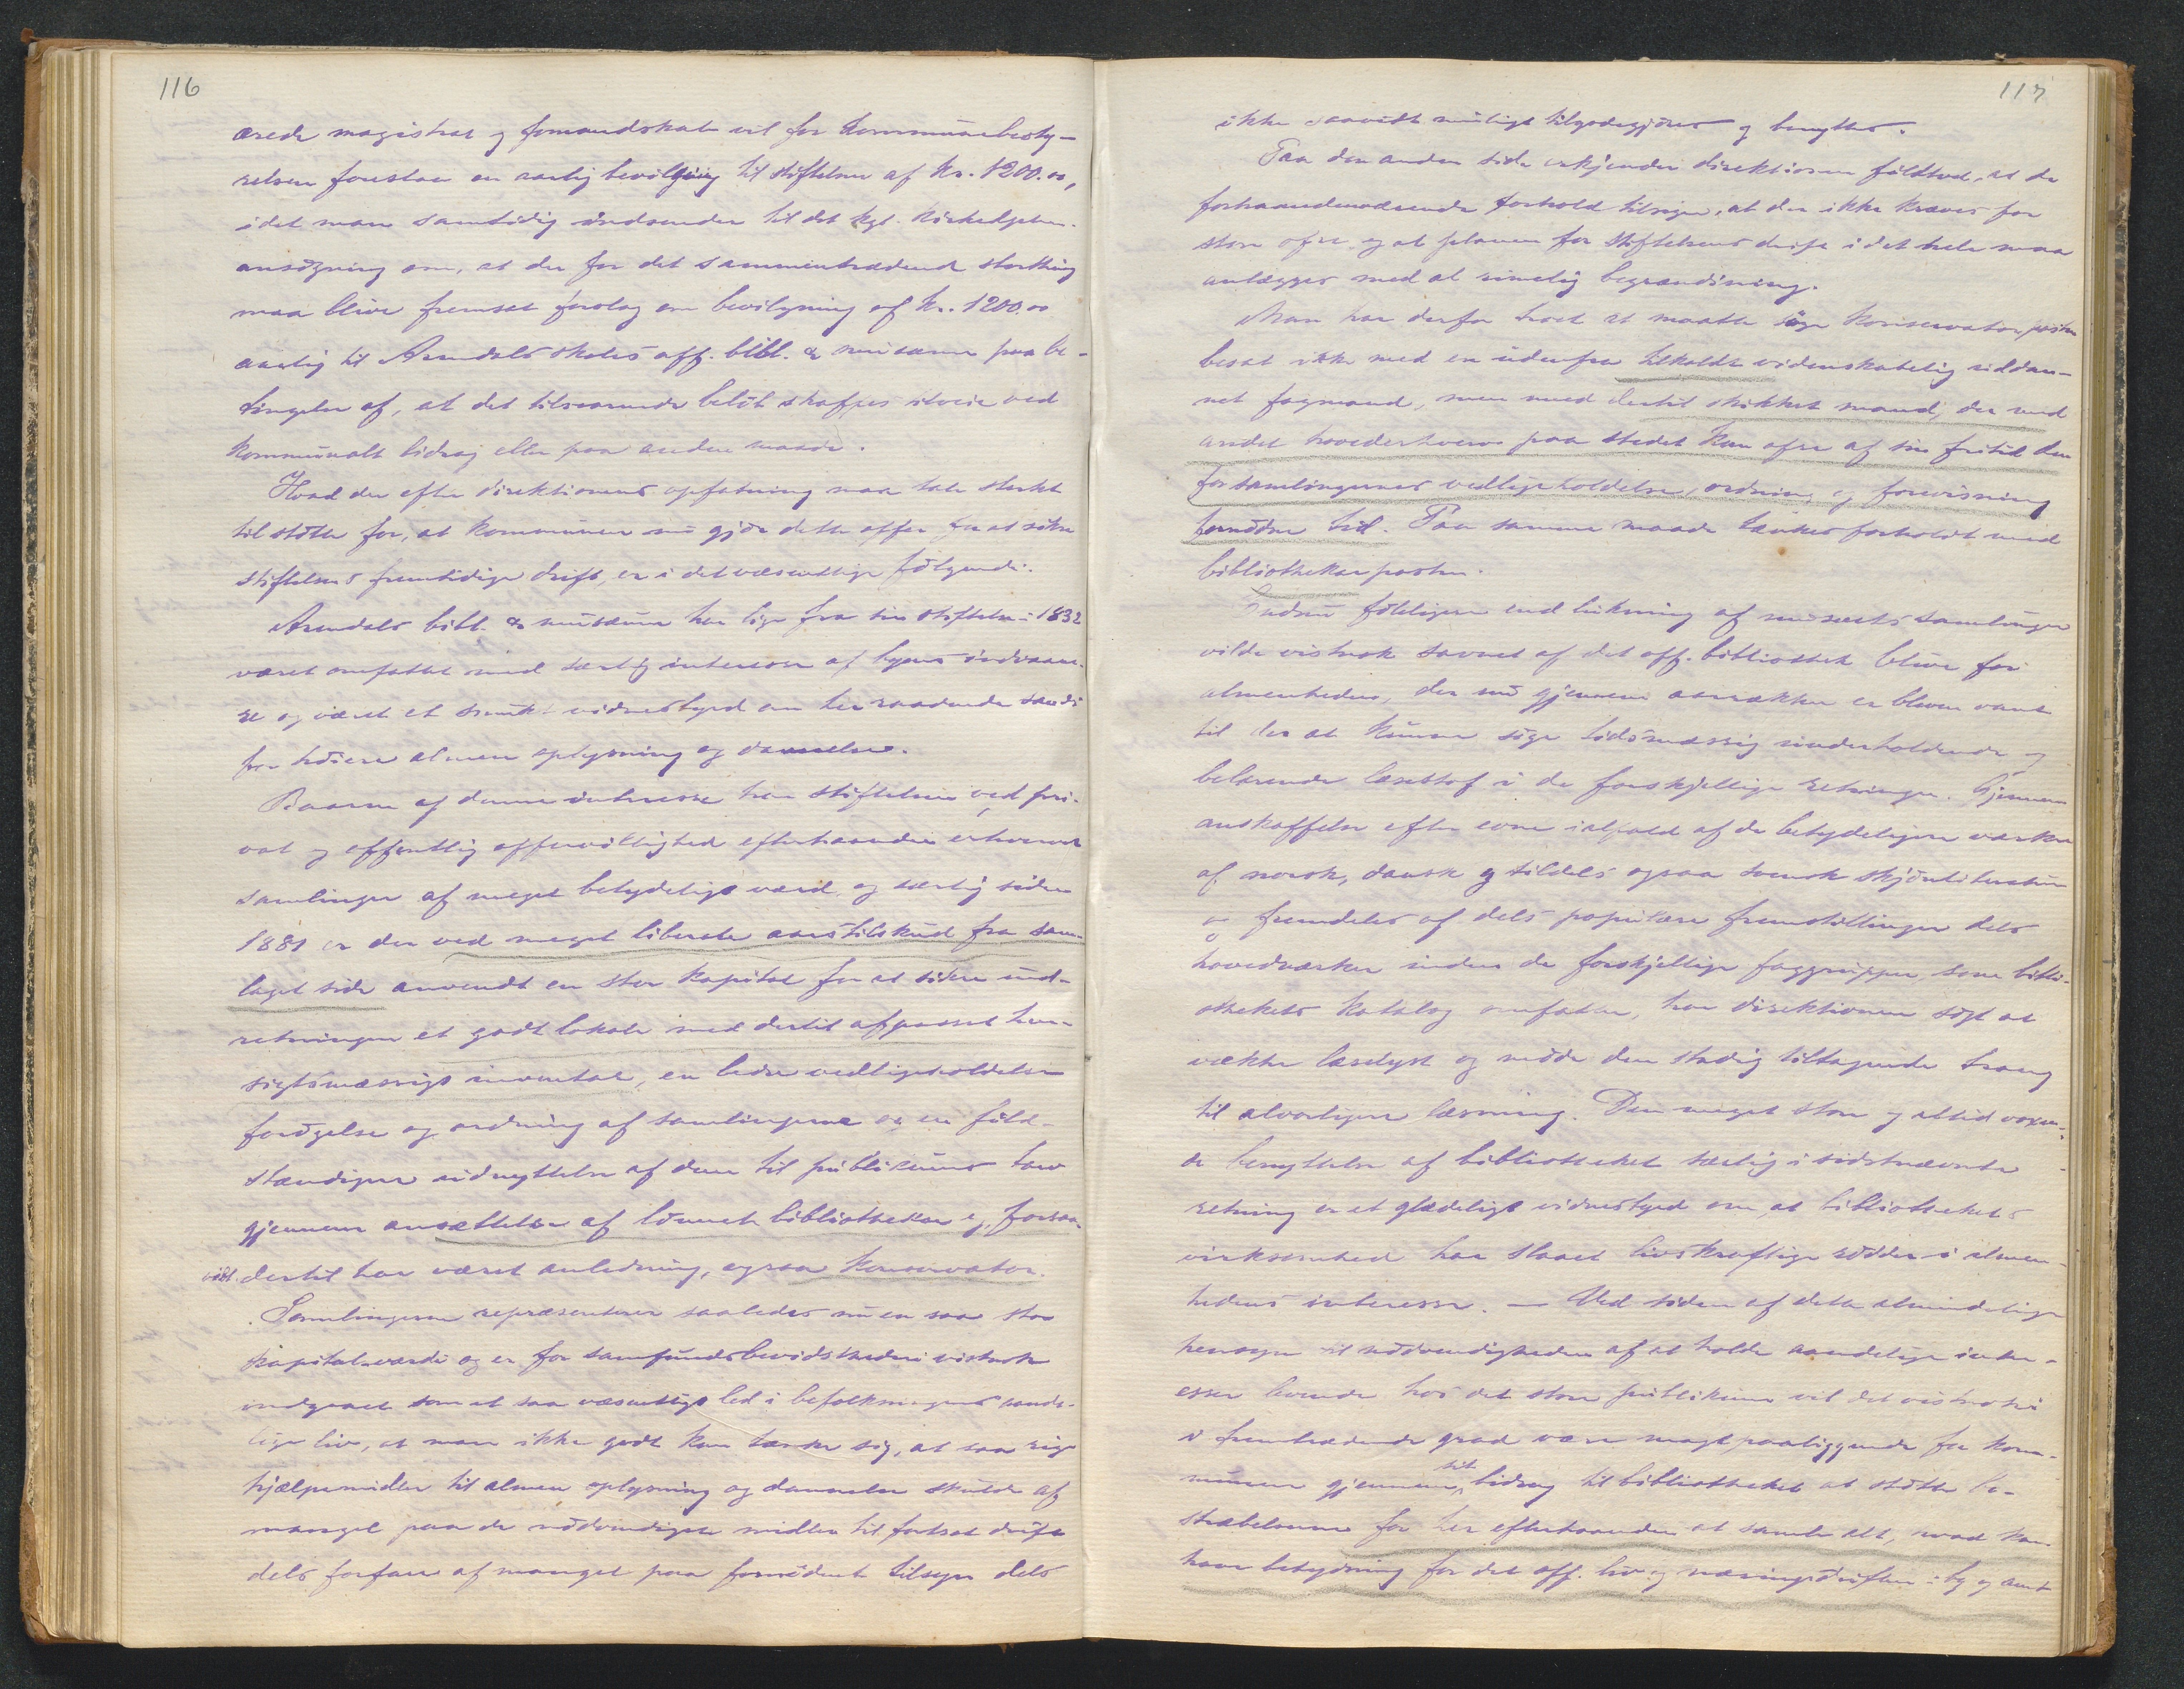 116
ærede magistrat og formandskab vil for kommunebesty-
relsen foreslaa en aarlig bevilgning til stiftelsen af kr. 1200.00,
idet man samtidig indsender til det kgl. kirkedepten.
ansøgning om, at der for det sammentrædende storthing
maa blive fremsat forslag om bevilgning af kr. 1200.00
aarlig til Arendals skoles off. bibl. & musæum paa be-
tingelse af, at det tilsvarende beløb skaffes tilveie ved
kommunalt bidrag eller paa anden maade.
Hvad der efter direktionens opfatning maa tale sterkt
til støtte for, at kommunen nu gjør dette offer for at sikre
stiftelsens fremtidige drift, er i det væsentlige følgende:
Arendals bibl. & musæum har lige fra sin stiftelse i 1832
været omfattet med særlig interesse af byens indvaane-
re og været et smukt vidnesbyrd om her raadende sands
for høiere almen oplysning og dannelse.
Baaren af denne interesse har stiftelsen ved pri-
vat og offentlig offervillighed efterhaanden erhvervet
samlinger af meget betydeligt værd, og særlig siden
1881 er der ved meget liberale aarstilskud fra sam-
laget side anvendt en stor kapital for at sikre ind-
retningen et godt lokale med dertil afpasset hen-
sigtsmæssigt inventar, en bedre vedligeholdelse
forøgelse og ordning af samlingerne og en fuld-
stændigere udnyttelse af dem til publikums tarv
gjennem ansættelse af lønnet bibliothekar og, forsaa-
vidt dertil har været anledning, ogsaa konservator.
Samlingerne repræsenterer saaledes nu en saa stor
kapitalværdi og er for samfundsbevidstheden vistnok
indgaaet som et saa væsentligt led i befolkningens aande-
lige liv, at man ikke godt kan tænke sig, at saa rige
hjælpemidler til almen oplysning og dannelse skulde af
mangel paa de nødvendigste midler til fortsat drift
dels forfare af mangel paa fornødent tilsyn dels
117
ikke saavidt muligt tilgodegjøres og benyttes.
Paa den anden side erkjender direktionen fuldtud, at de
forhaandenværende forhold tilsiger, at der ikke kræves for
store ofre og at planen for stiftelsens drift i det hele maa
anlægges med al rimelig begrændsning.
Man har derfor troet at maatte søge konservatorposten
besat ikke med en udenfra tilkaldt videnskabelig uddan-
net fagmand, men med dertil skikket mand, der med
andet hovederhverv paa stedet kan ofre af sin fritid den
for samlingernes vedligeholdelse, ordning og forevisning
fornødne tid. Paa samme maade tænkes forholdt med
bibliothekarposten.
Endnu føleligere end lukning af musæets samlinger
vilde vistnok savnet af det off. bibliothek blive for
almenheden, der nu gjennem aarrækker er bleven vant
til der at kunne søge tidsmæssig underholdende og
belærende læsestof i de forskjellige retninger. Gjennem
anskaffelse efter evne ialfald af de betydeligere værker
af norsk, dansk og tildels ogsaa svensk skjønliteratur
og fremdeles af dels populære fremstillinger dels
hovedværker inden de forskjellige faggrupper som bibli-
othekets katalog omfatter, har direktionen søgt at
vække læselyst og møde den stadig tiltagende trang
til alvorligere læsning. Den meget store og altid voxen-
de benyttelse af bibliotheket særlig i sidstnævnte
retning er et glædeligt vidnesbyrd om at bibliothekets
virksomhed har slaaet livskraftige rødder i almen-
hedens interesse. — Ved siden af dette almindelige
hensyn til nødvendigheden af at holde aandelige inter-
esser levende hos det store publikum vil det vistnok
i fremtrædende grad være magtpaaliggende for kom-
munen gjennem sit bidrag til bibliotheket at støtte be-
stræbelserne for her efterhaanden at samle alt, hvad kan
have betydning for det off. liv og næringsdriften i by og amt